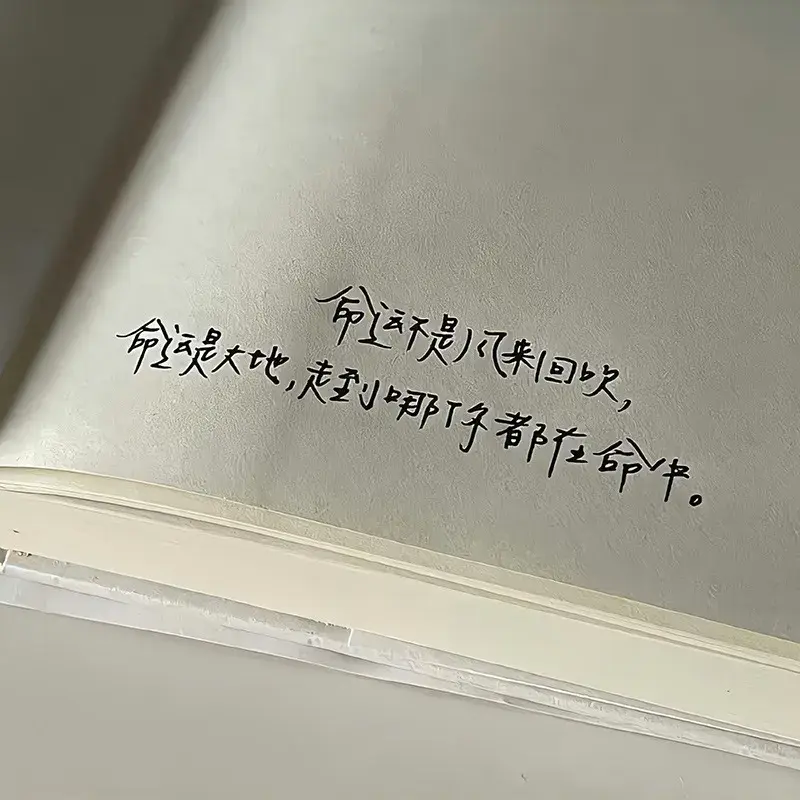 命运不是风来回吹，
命运是大地，走到哪你都在命中。